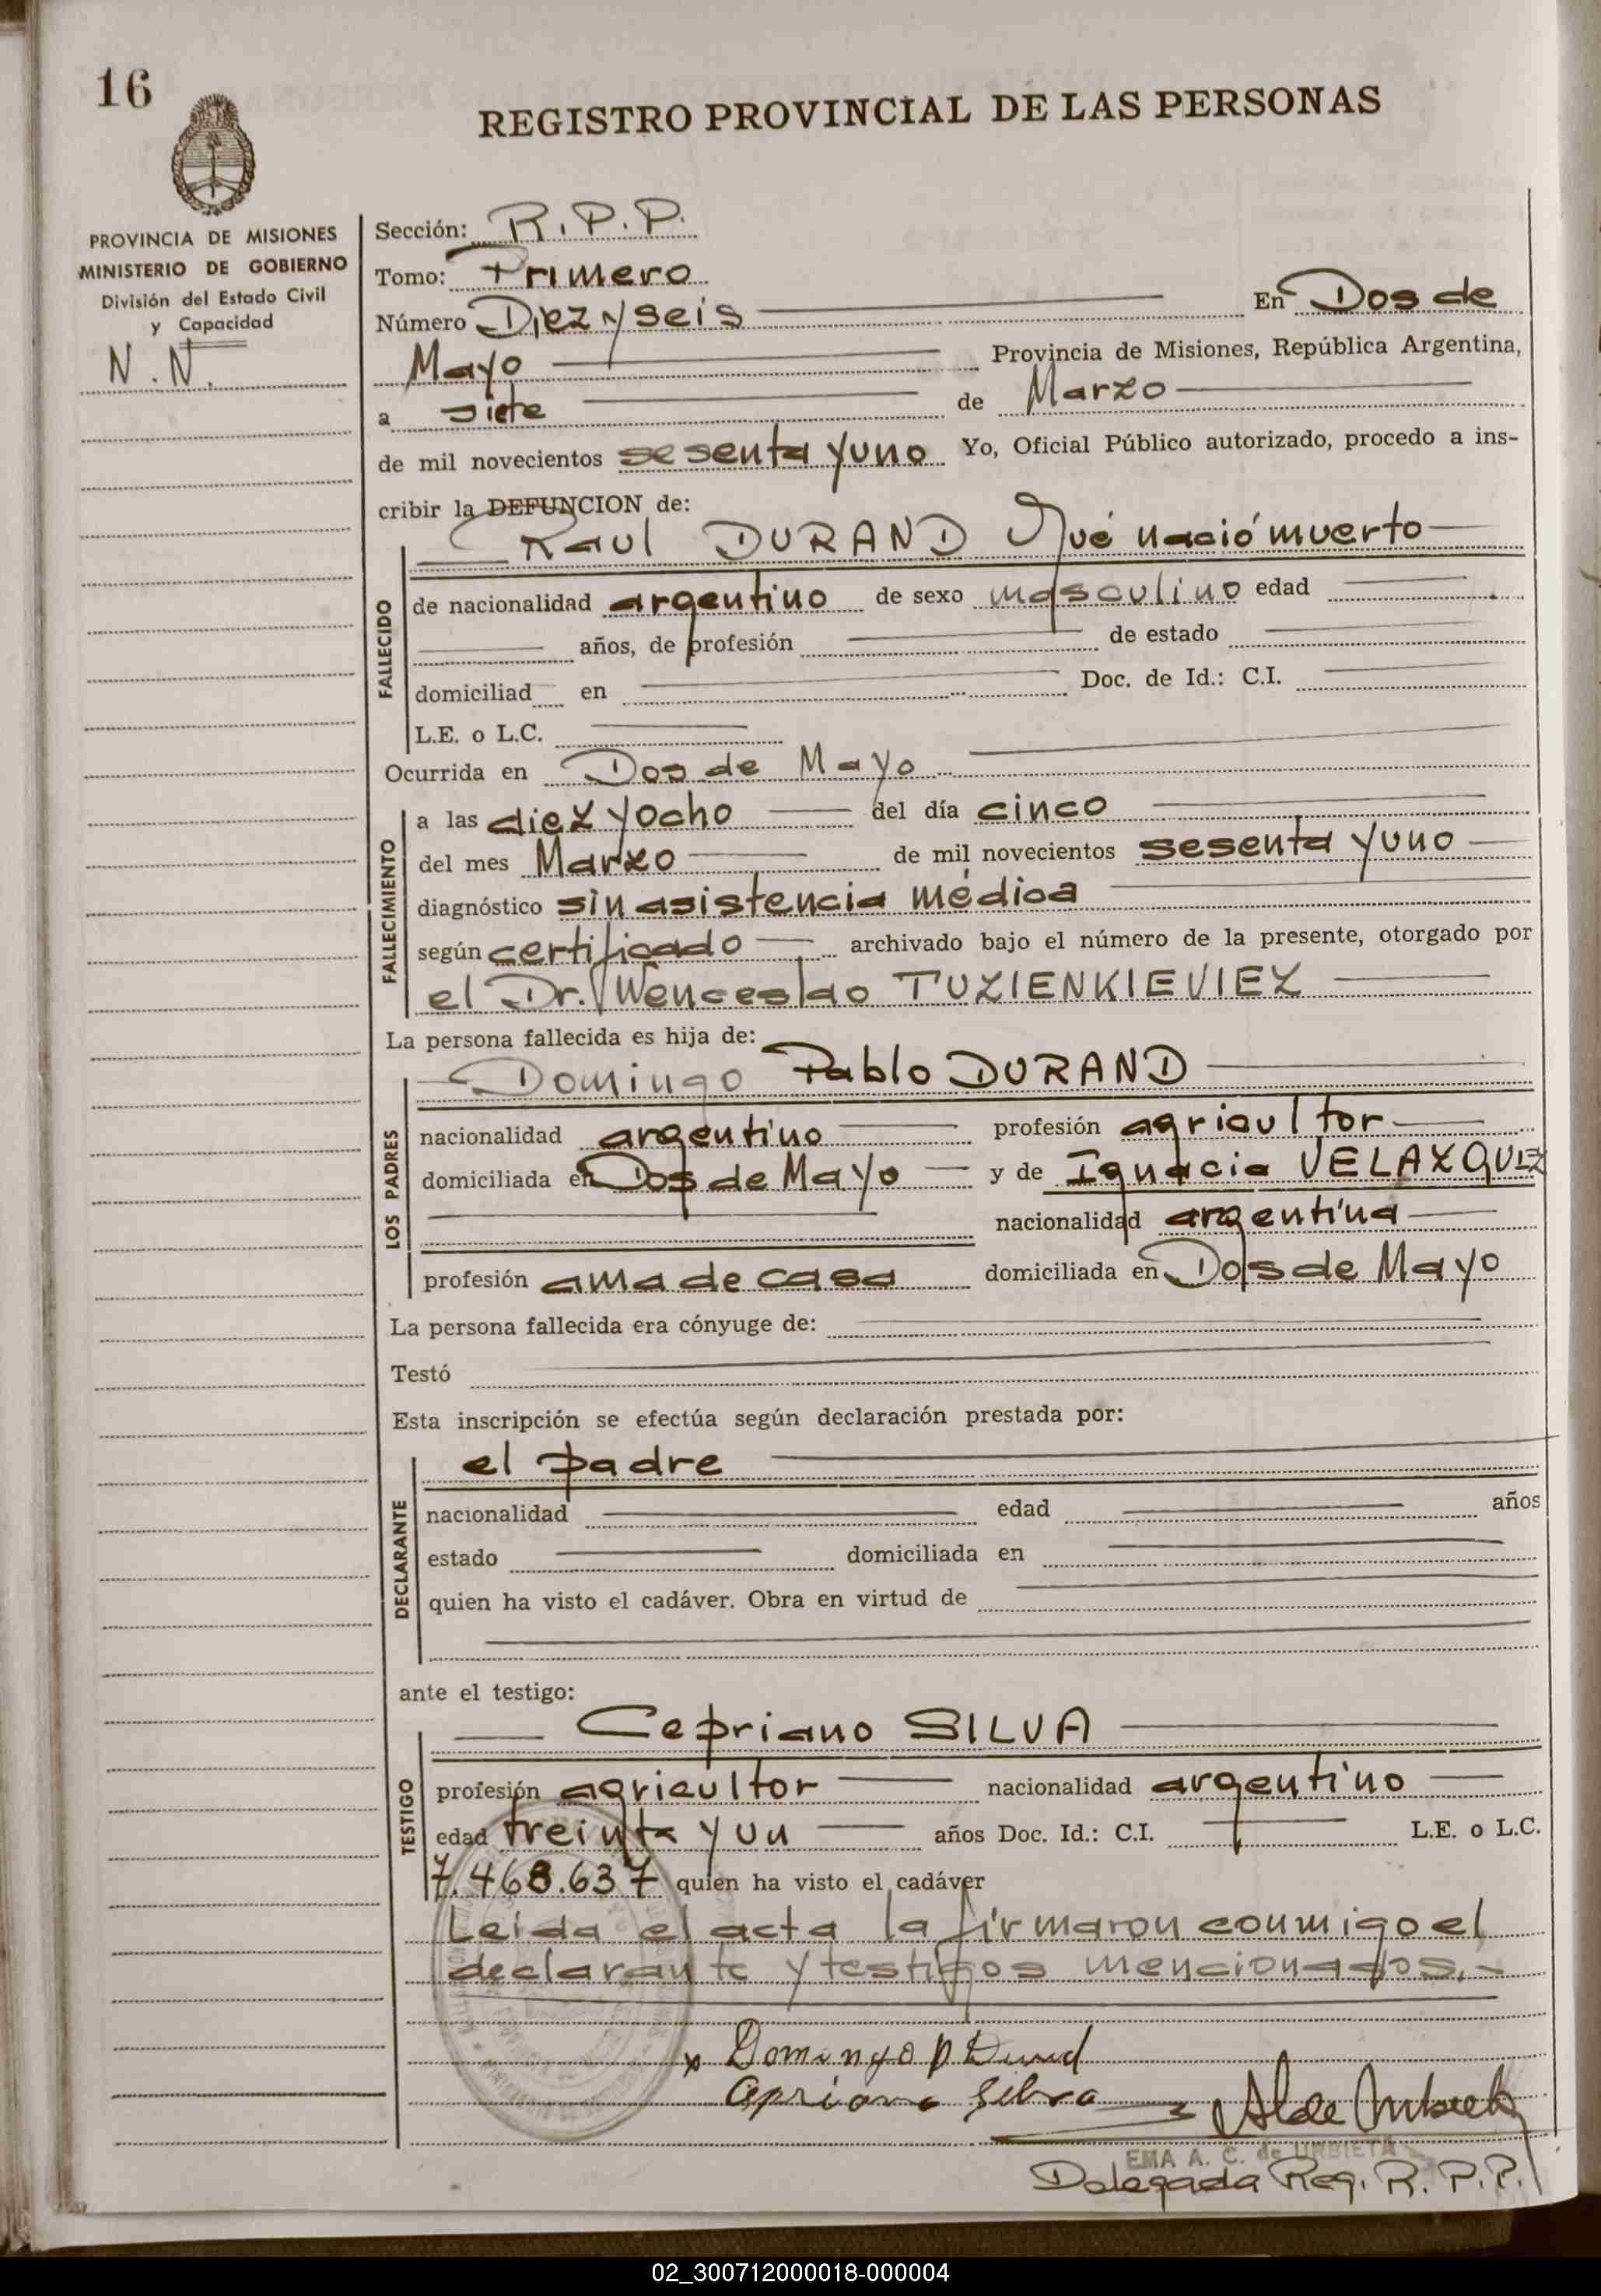 16
REGISTRO PROVINCIAL DE LAS PERSONAS
PROVINCIA DE MISIONES
MINISTERIO DE GOBIERNO
División del Estado Civil
y Capacidad
N.N.
Sección: R.P.P.
Tomo: Primero
Número Diez y seis En Dos de
Mayo Provincia de Misiones, República Argentina,
a siete de Marzo
de mil novecientos sesenta y uno Yo, Oficial Público autorizado, procedo a ins-
cribir la DEFUNCION de:
Raul DURAND Qué nació muerto
FALLECIDO
de nacionalidad argentino de sexo masculino edad
años, de profesión de estado
domiciliad en Doc. de Id.: C.I.
L.E. o L.C.
Ocurrida en Dos de Mayo
FALLECIMIENTO
a las diez y ocho del día cinco
del mes Marzo de mil novecientos sesenta y uno
diagnóstico sin asistencia médica
según certificado archivado bajo el número de la presente, otorgado por
el Dr. Wenceslao TUZIENKIEVIEZ
La persona fallecida es hija de:
Domingo Pablo DURAND
LOS PADRES
nacionalidad argentino profesión agricultor
domiciliada en Dos de Mayo y de Ignacia VELAZQUEZ
nacionalidad argentina
profesión ama de casa domiciliada en Dos de Mayo
La persona fallecida era cónyuge de:
Testó
Esta inscripción se efectúa según declaración prestada por:
el padre
DECLARANTE
nacionalidad edad años
estado domiciliada en
quien ha visto el cadáver. Obra en virtud de
ante el testigo:
Cepriano SILVA
TESTIGO
profesión agricultor nacionalidad argentino
edad treinta y un años Doc. Id.: C.I. L.E. o L.C.
7.468.637 quien ha visto el cadáver
Leida el acta la firmaron conmigo el
declarante y testigos mencionados.-
x Domingo P Durand
Cipriano Silva
EMA A. C. de URBIETA
Delegada Reg. R. P. P.
02_300712000018-000004